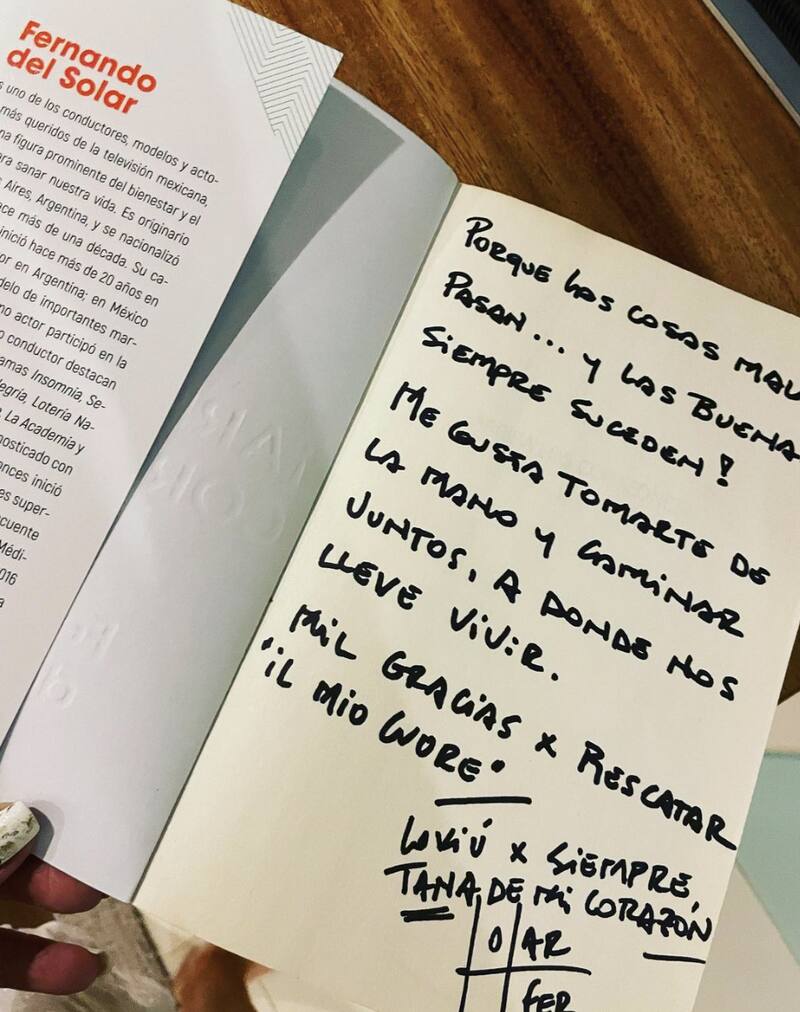 Fernando
del Solar
s uno de los conductores, modelos y acto-
más queridos de la televisión mexicana,
na figura prominente del bienestar y el
ra sanar nuestra vida. Es originario
Aires, Argentina, y se nacionalizó
ace más de una década. Su ca-
inició hace más de 20 años en
or en Argentina; en México
delo de importantes mar-
no actor participó en la
o conductor destacan
amas Insomnia, Se-
legría, Lotería Na-
, La Academia y
nosticado con
onces inició
es super-
cuente
Médi-
016
a
PORQUE LAS COSAS MALA
PASAN... Y LAS BUENA
SIEMPRE SUCEDEN!
ME GUSTA TOMARTE DE
LA MANO Y CAMINAR
JUNTOS, A DONDE NOS
LLEVE VIVIR.
MIL GRACIAS X RESCATAR
"IL MIO CUORE"
LOVIÚ X SIEMPRE,
TANA DE MI CORAZÓN
O AR
FER